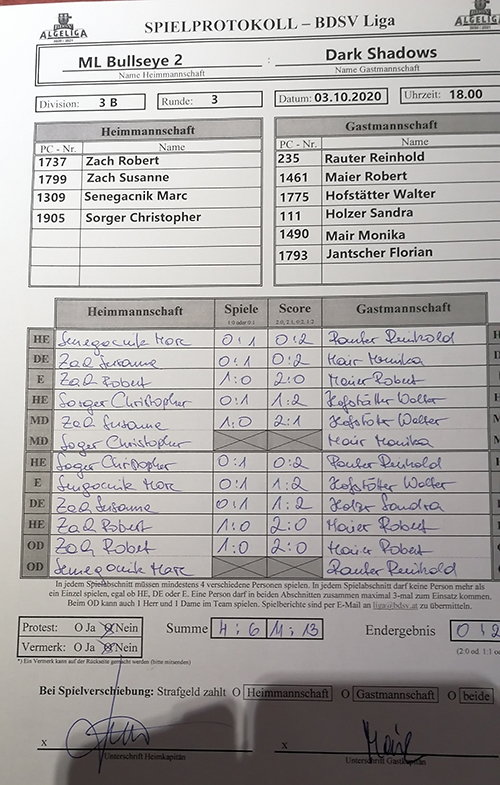 ALGELIGA
SPIELPROTOKOLL – BDSV Liga
ALGELIGA
ML Bullseye 2 : Dark Shadows
Name Heimmannschaft Name Gastmannschaft
Division: 3 B Runde: 3 Datum: 03.10.2020 Uhrzeit: 18.00
Heimmannschaft Gastmannschaft
PC - Nr. Name PC - Nr. Name
1737 Zach Robert 235 Rauter Reinhold
1799 Zach Susanne 1461 Maier Robert
1309 Senegacnik Marc 1775 Hofstätter Walter
1905 Sorger Christopher 111 Holzer Sandra
1490 Mair Monika
1793 Jantscher Florian
Heimmannschaft Spiele Score Gastmannschaft
1:0 oder 0:1 2:0, 2:1, 0:2, 1:2
HE Senegacnik Marc 0:1 0:2 Rauter Reinhold H
DE Zach Susanne 0:1 0:2 Mair Monika
E Zach Robert 1:0 2:0 Maier Robert
HE Sorger Christopher 0:1 1:2 Hofstätter Walter
MD Zach Susanne 1:0 2:1 Hofstätter Walter
MD Soger Christopher Mair Monika
HE Soger Christopher 0:1 0:2 Rauter Reinhold
E Sengacnik Marc 0:1 1:2 Hofstätter Walter
DE Zach Susanne 0:1 1:2 Holzer Sandra
HE Zach Robert 1:0 2:0 Maier Robert
OD Zach Robert 1:0 2:0 Maier Robert
OD Senegacnik Marc Rauter Reinhold
In jedem Spielabschnitt müssen mindestens 4 verschiedene Personen spielen. In jedem Spielabschnitt darf keine Person mehr als
ein Einzel spielen, egal ob HE, DE oder E. Eine Person darf in beiden Abschnitten zusammen maximal 3-mal zum Einsatz kommen.
Beim OD kann auch 1 Herr und 1 Dame im Team spielen. Spielberichte sind per E-Mail an liga@bdsv.at zu übermitteln.
Protest: O Ja O Nein Summe 4:6 11:13 Endergebnis 0:2
Vermerk: O Ja O Nein (2:0 od. 1:1 o
*) Ein Vermerk kann auf der Rückseite gemacht werden (bitte mitsenden)
Bei Spielverschiebung: Strafgeld zahlt O Heimmannschaft O Gastmannschaft O beide
x x Mair
Unterschrift Heimkapitän Unterschrift Gastkapitän